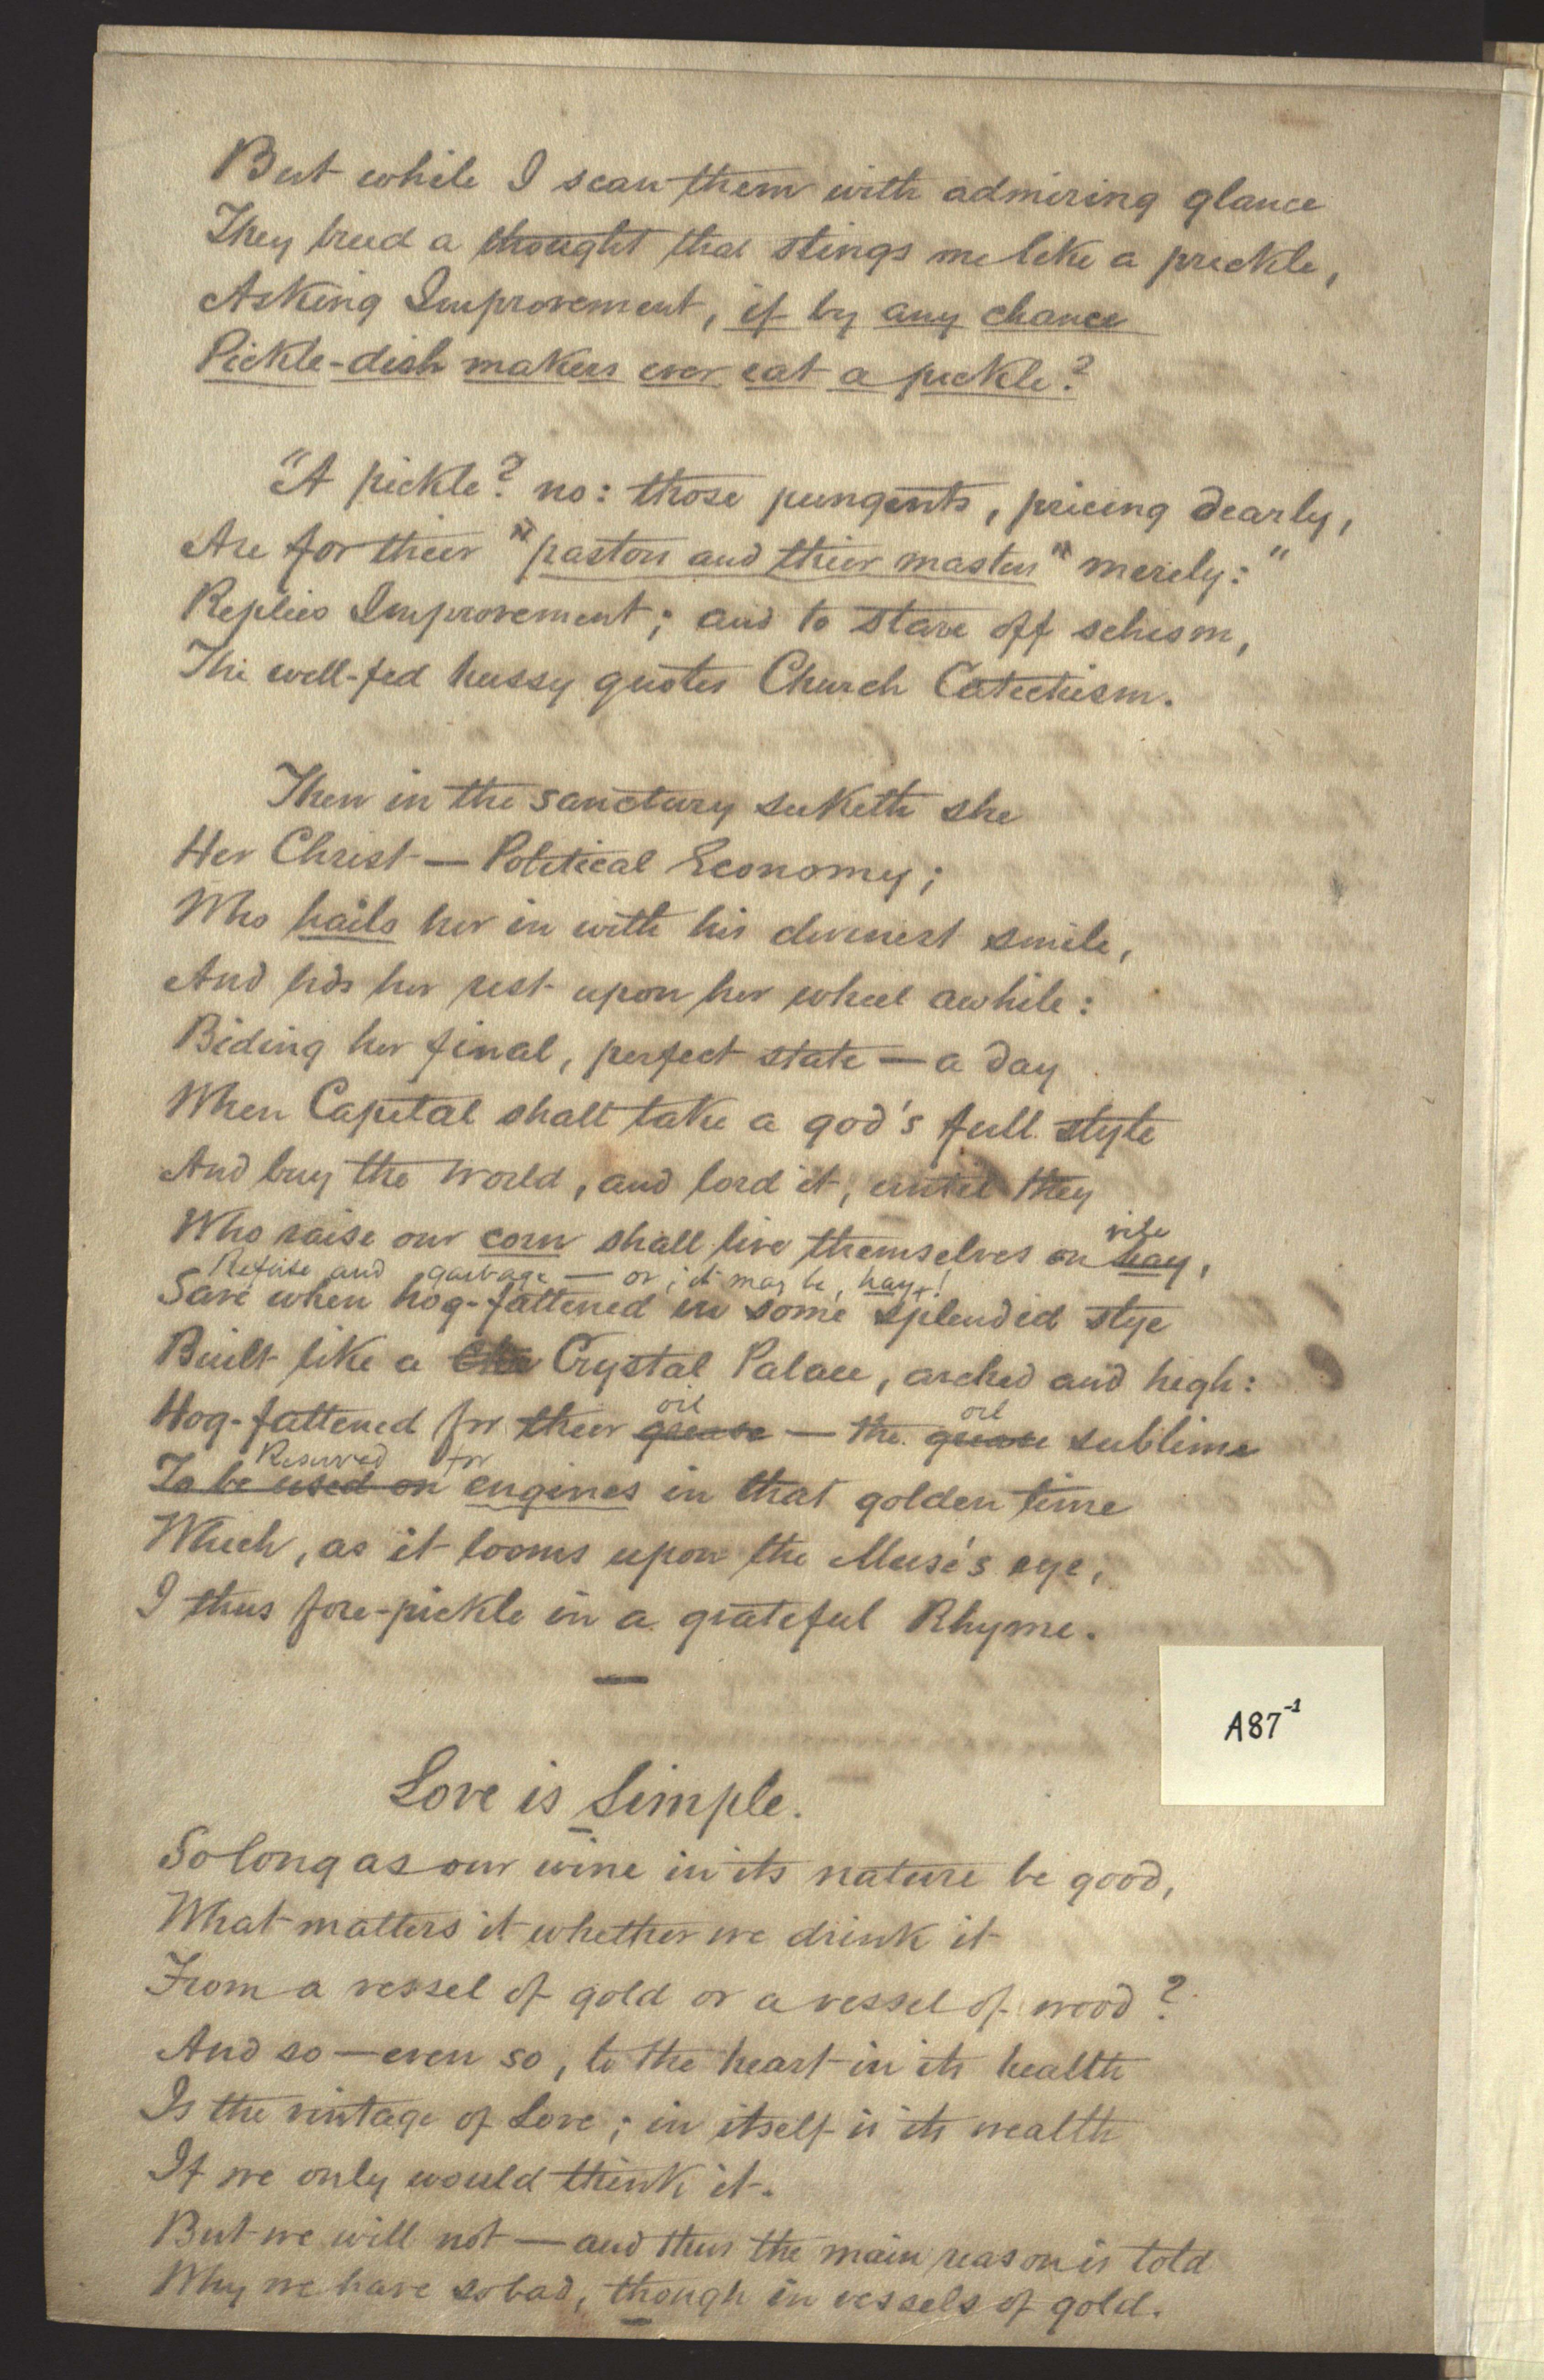 But while I scan them with admiring glance
They breed a thought that stings me like a prickle,
Asking Improvement, if by any chance
Pickle-dish makers ever eat a pickle?
"A pickle? no: those pungents, pricing dearly,
Are for their "pastors and their masters" merely:"
Replies Improvement; and to stave off schism,
The well-fed hussy quotes Church Catechism.
Then in the sanctury seeketh she
Her Christ — Political Economy;
Who hails her in with his divinest smile,
And bids her rest upon her wheel awhile:
Biding her final, perfect state — a day
When Capital shall take a god's full style
And buy the world, and lord it, until they
vile
Who raise our corn shall live themselves on hay,
Refuse and garbage — or, it may be, hay!
Save when hog-fattened in some splendid stye
Built like a Crystal Palace, arched and high:
oil oil
Hog-fattened for their grease — the grease sublime
Reserved for
To be used on engines in that golden time
Which, as it looms upon the Muse's eye,
I thus fore-pickle in a grateful Rhyme.
A87-1
Love is Simple.
So long as our wine in its nature be good,
What matters it whether we drink it
From a vessel of gold or a vessel of wood?
And so — even so, to the heart in its health
Is the vintage of Love; in itself is its wealth
If we only would think it.
But we will not — and thus the main reason is told
Why we have so bad, though in vessels of gold.